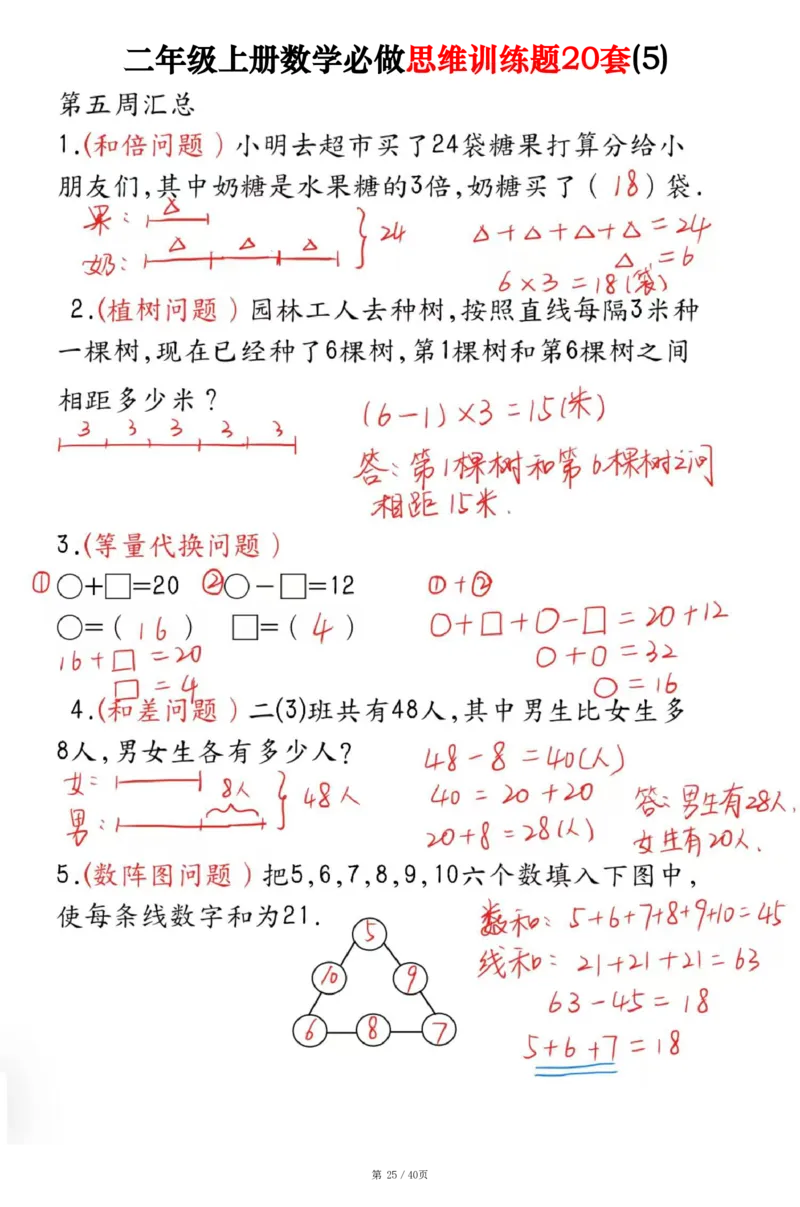 二年级上册数学必做思维训练题20套(5)
第五周汇总
1.(和倍问题)小明去超市买了24袋糖果打算分给小
朋友们,其中奶糖是水果糖的3倍,奶糖买了(18)袋.
果: △
奶: △ △ △ } 24
△+△+△+△=24
△=6
6×3=18(袋)
2.(植树问题)园林工人去种树,按照直线每隔3米种
一棵树,现在已经种了6棵树,第1棵树和第6棵树之间
相距多少米?
3 3 3 3 3
(6-1)×3=15(米)
答:第1棵树和第6棵树之间
相距15米.
3.(等量代换问题)
①○+□=20 ②○-□=12
○=(16) □=(4)
16+□=20
□=4
①+②
○+□+○-□=20+12
○+○=32
○=16
4.(和差问题)二(3)班共有48人,其中男生比女生多
8人,男女生各有多少人?
女:
男: 8人 } 48人
48-8=40(人)
40=20+20
20+8=28(人)
答:男生有28人,
女生有20人.
5.(数阵图问题)把5,6,7,8,9,10六个数填入下图中,
使每条线数字和为21.
5
10 9
6 8 7
数和:5+6+7+8+9+10=45
线和:21+21+21=63
63-45=18
5+6+7=18
第 25 / 40页